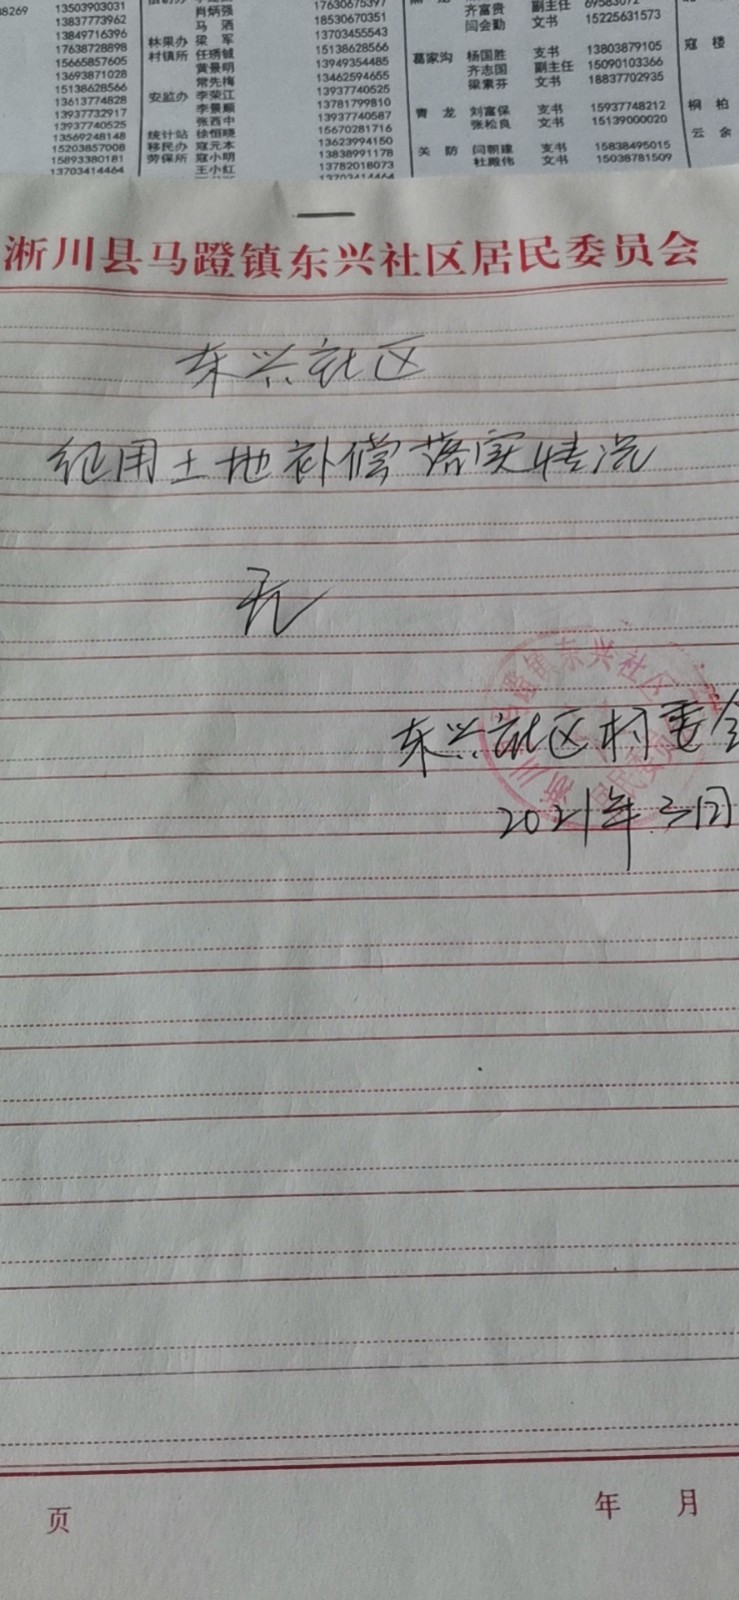 38269 13503903031 肖炳强 17630675397 齐富贵 副主任 69583072
13837773962 马 酒 18530670351 闫会勤 文书 15225631573
13849716396 林果办 梁 军 13703455543
17638728898 村镇所 任琇铖 15138628566 葛家沟 杨国胜 支书 13803879105 寇 楼
15665857605 黄景明 13949354485 齐志国 副主任 15090103366
13693871028 常先梅 13462594655 梁素芬 文书 18837702935
15138628566 安监办 李荣江 13937740525
13613774828 李景顺 13781799810 青 龙 刘富保 支书 15937748212 桐 柏
13937732917 张西中 13937740587 张松良 文书 15139000020
13937740525 统计站 徐恒晓 15670281716 云 余
13569248148 移民办 寇元本 13623994150 关 防 闫朝建 支书 15838495015
15203857008 劳保所 寇小明 13838991178 杜殿伟 文书 15038781509
15893380181 王小红 13782018073
13703414464 13703414464
淅川县马蹬镇东兴社区居民委员会
东兴社区
征用土地补偿落实情况
无
东兴社区村委会
2021年三月
页 年 月